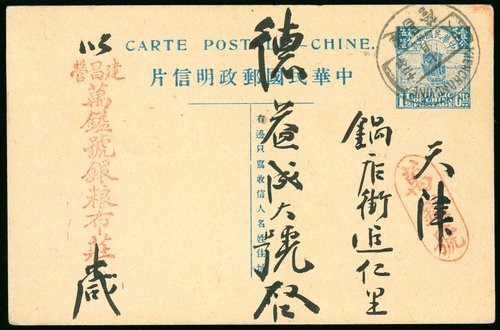 CARTE POSTALE—CHINE.
中華民國郵政明信片
天津
鍋店街追仁里
德益成大號啓
右邊只寫收信人名姓住址
建昌營
萬鎰號銀粮布莊